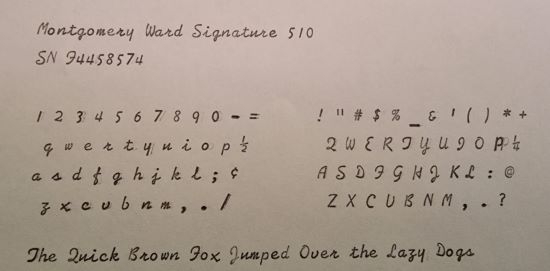 Montgomery Ward Signature 510
SN F4458574
1 2 3 4 5 6 7 8 9 0 - =
q w e r t y u i o p ½
a s d f g h j k l ; ¢
z x c v b n m , . /
! " # $ % _ & ' ( ) * +
Q W E R T Y U I O P ¼
A S D F G H J K L : @
Z X C V B N M , . ?
The Quick Brown Fox Jumped Over the Lazy Dogs